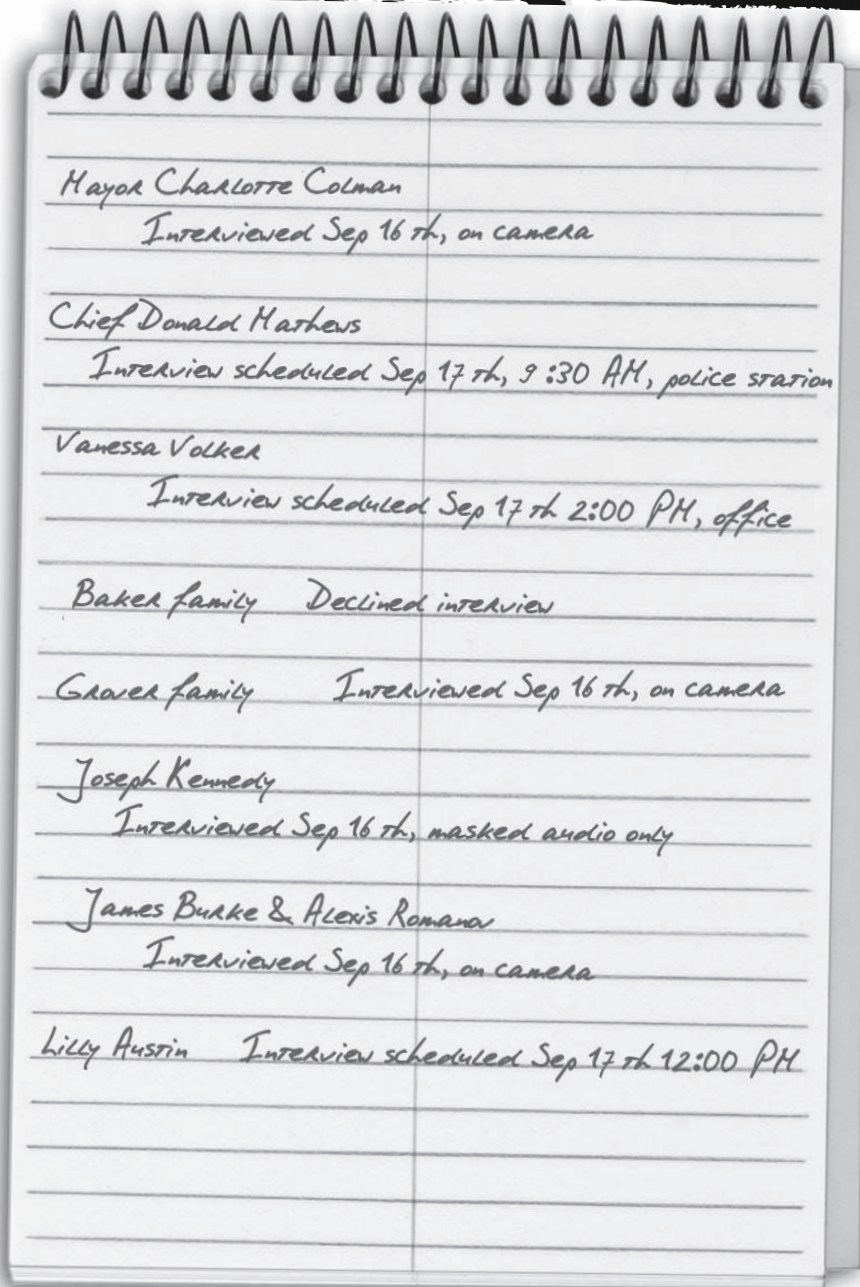 Mayor Charlotte Colman
Interviewed Sep 16 th, on camera
Chief Donald Mathews
Interview scheduled Sep 17 th, 9 :30 AM, police station
Vanessa Volker
Interview scheduled Sep 17 th 2:00 PM, office
Baker family Declined interview
Grover family Interviewed Sep 16 th, on camera
Joseph Kennedy
Interviewed Sep 16 th, masked audio only
James Burke & Alexis Romanov
Interviewed Sep 16 th, on camera
Lilly Austin Interview scheduled Sep 17 th 12:00 PM